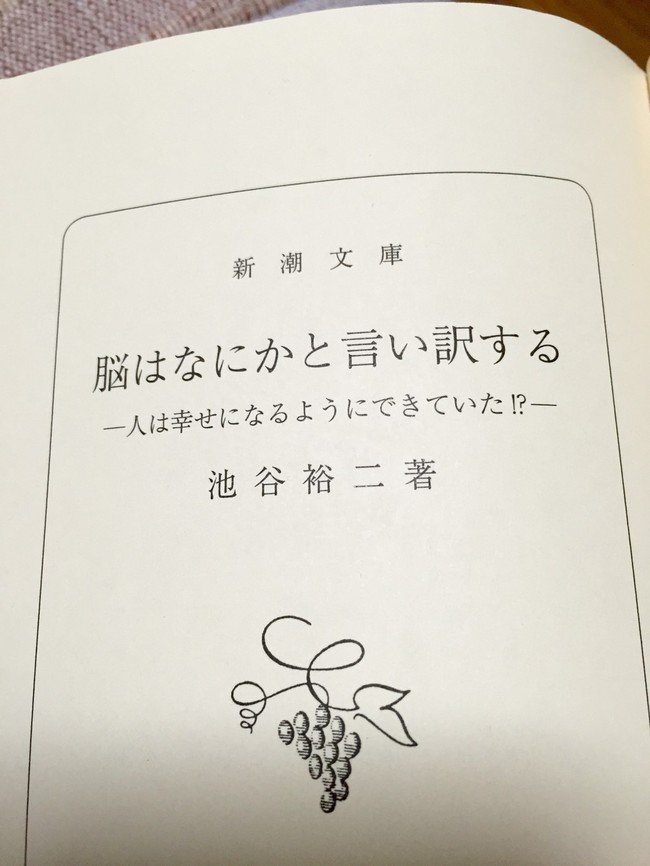 新潮文庫
脳はなにかと言い訳する
—人は幸せになるようにできていた!?—
池谷裕二著